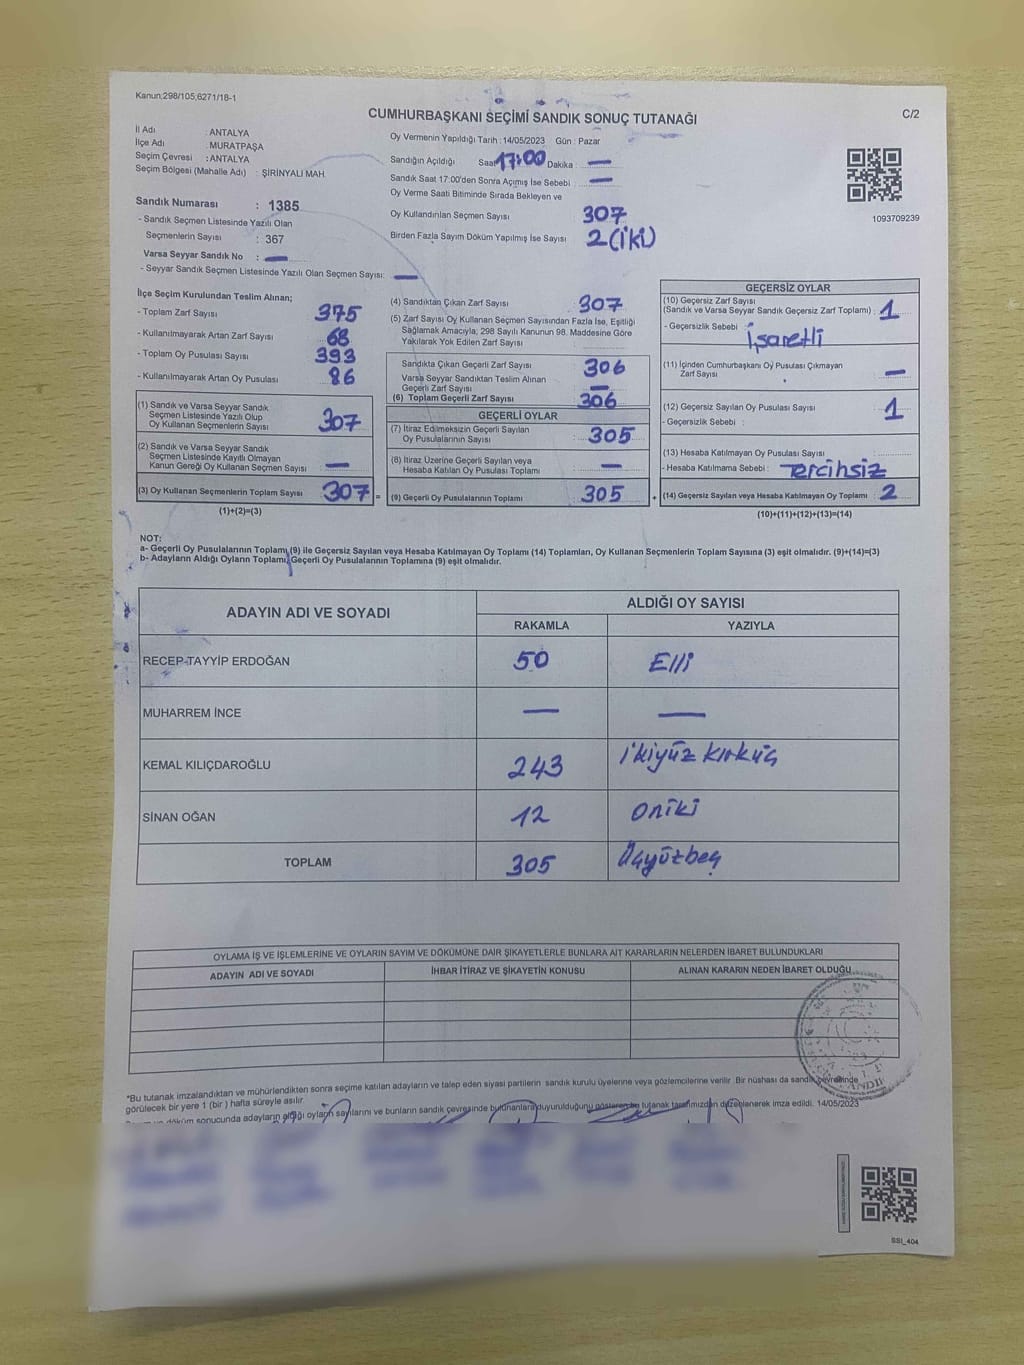 Kanun;298/105,6271/18-1
CUMHURBAŞKANI SEÇİMİ SANDIK SONUÇ TUTANAĞI
C/2
İl Adı : ANTALYA
İlçe Adı : MURATPAŞA
Seçim Çevresi : ANTALYA
Seçim Bölgesi (Mahalle Adı) : ŞİRİNYALI MAH.
Sandık Numarası : 1385
- Sandık Seçmen Listesinde Yazılı Olan
Seçmenlerin Sayısı : 367
Varsa Seyyar Sandık No : —
- Seyyar Sandık Seçmen Listesinde Yazılı Olan Seçmen Sayısı: —
Oy Vermenin Yapıldığı Tarih : 14/05/2023 Gün : Pazar
Sandığın Açıldığı Saat 17:00 Dakika : —
Sandık Saat 17:00'den Sonra Açımış İse Sebebi : —
Oy Verme Saati Bitiminde Sırada Bekleyen ve
Oy Kullandırılan Seçmen Sayısı 307
Birden Fazla Sayım Döküm Yapılmış İse Sayısı 2(iki)
1093709239
İlçe Seçim Kurulundan Teslim Alınan;
- Toplam Zarf Sayısı : 375
- Kullanılmayarak Artan Zarf Sayısı : 68
- Toplam Oy Pusulası Sayısı : 393
- Kullanılmayarak Artan Oy Pusulası : 86
(1) Sandık ve Varsa Seyyar Sandık
Seçmen Listesinde Yazılı Olup
Oy Kullanan Seçmenlerin Sayısı : 307
(2) Sandık ve Varsa Seyyar Sandık
Seçmen Listesinde Kayıtlı Olmayan
Kanun Gereği Oy Kullanan Seçmen Sayısı : —
(3) Oy Kullanan Seçmenlerin Toplam Sayısı 307 =
(1)+(2)=(3)
(4) Sandıktan Çıkan Zarf Sayısı : 307
(5) Zarf Sayısı Oy Kullanan Seçmen Sayısından Fazla İse, Eşitliği
Sağlamak Amacıyla; 298 Sayılı Kanunun 98. Maddesine Göre
Yakılarak Yok Edilen Zarf Sayısı :
Sandıkta Çıkan Geçerli Zarf Sayısı : 306
Varsa Seyyar Sandıktan Teslim Alınan
Geçerli Zarf Sayısı : —
(6) Toplam Geçerli Zarf Sayısı : 306
GEÇERLİ OYLAR
(7) İtiraz Edilmeksizin Geçerli Sayılan
Oy Pusulalarının Sayısı : 305
(8) İtiraz Üzerine Geçerli Sayılan veya
Hesaba Katılan Oy Pusulası Toplamı : —
(9) Geçerli Oy Pusulalarının Toplamı : 305 +
GEÇERSİZ OYLAR
(10) Geçersiz Zarf Sayısı
(Sandık ve Varsa Seyyar Sandık Geçersiz Zarf Toplamı) : 1
- Geçersizlik Sebebi : işaretli
(11) İçinden Cumhurbaşkanı Oy Pusulası Çıkmayan
Zarf Sayısı : —
(12) Geçersiz Sayılan Oy Pusulası Sayısı : 1
- Geçersizlik Sebebi :
(13) Hesaba Katılmayan Oy Pusulası Sayısı :
- Hesaba Katılmama Sebebi : Tercihsiz
(14) Geçersiz Sayılan veya Hesaba Katılmayan Oy Toplamı : 2
(10)+(11)+(12)+(13)=(14)
NOT:
a- Geçerli Oy Pusulalarının Toplamı (9) ile Geçersiz Sayılan veya Hesaba Katılmayan Oy Toplamı (14) Toplamları, Oy Kullanan Seçmenlerin Toplam Sayısına (3) eşit olmalıdır. (9)+(14)=(3)
b- Adayların Aldığı Oyların Toplamı, Geçerli Oy Pusulalarının Toplamına (9) eşit olmalıdır.
ADAYIN ADI VE SOYADI
ALDIĞI OY SAYISI
RAKAMLA YAZIYLA
RECEP TAYYİP ERDOĞAN 50 Elli
MUHARREM İNCE — —
KEMAL KILIÇDAROĞLU 243 ikiyüz kırküç
SİNAN OĞAN 12 Oniki
TOPLAM 305 Üçyüzbeş
OYLAMA İŞ VE İŞLEMLERİNE VE OYLARIN SAYIM VE DÖKÜMÜNE DAİR ŞİKAYETLERLE BUNLARA AİT KARARLARIN NELERDEN İBARET BULUNDUKLARI
ADAYIN ADI VE SOYADI İHBAR İTİRAZ VE ŞİKAYETİN KONUSU ALINAN KARARIN NEDEN İBARET OLDUĞU
*Bu tutanak imzalandıktan ve mühürlendikten sonra seçime katılan adayların ve talep eden siyasi partilerin sandık kurulu üyelerine veya gözlemcilerine verilir. Bir nüshası da sandık çevresinde
görülecek bir yere 1 (bir) hafta süreyle asılır.
döküm sonucunda adayların aldığı oyların sayılarını ve bunların sandık çevresinde bulunanlara duyurulduğunu gösteren bu tutanak tarafımızdan düzenlenerek imza edildi. 14/05/2023
SSI_404